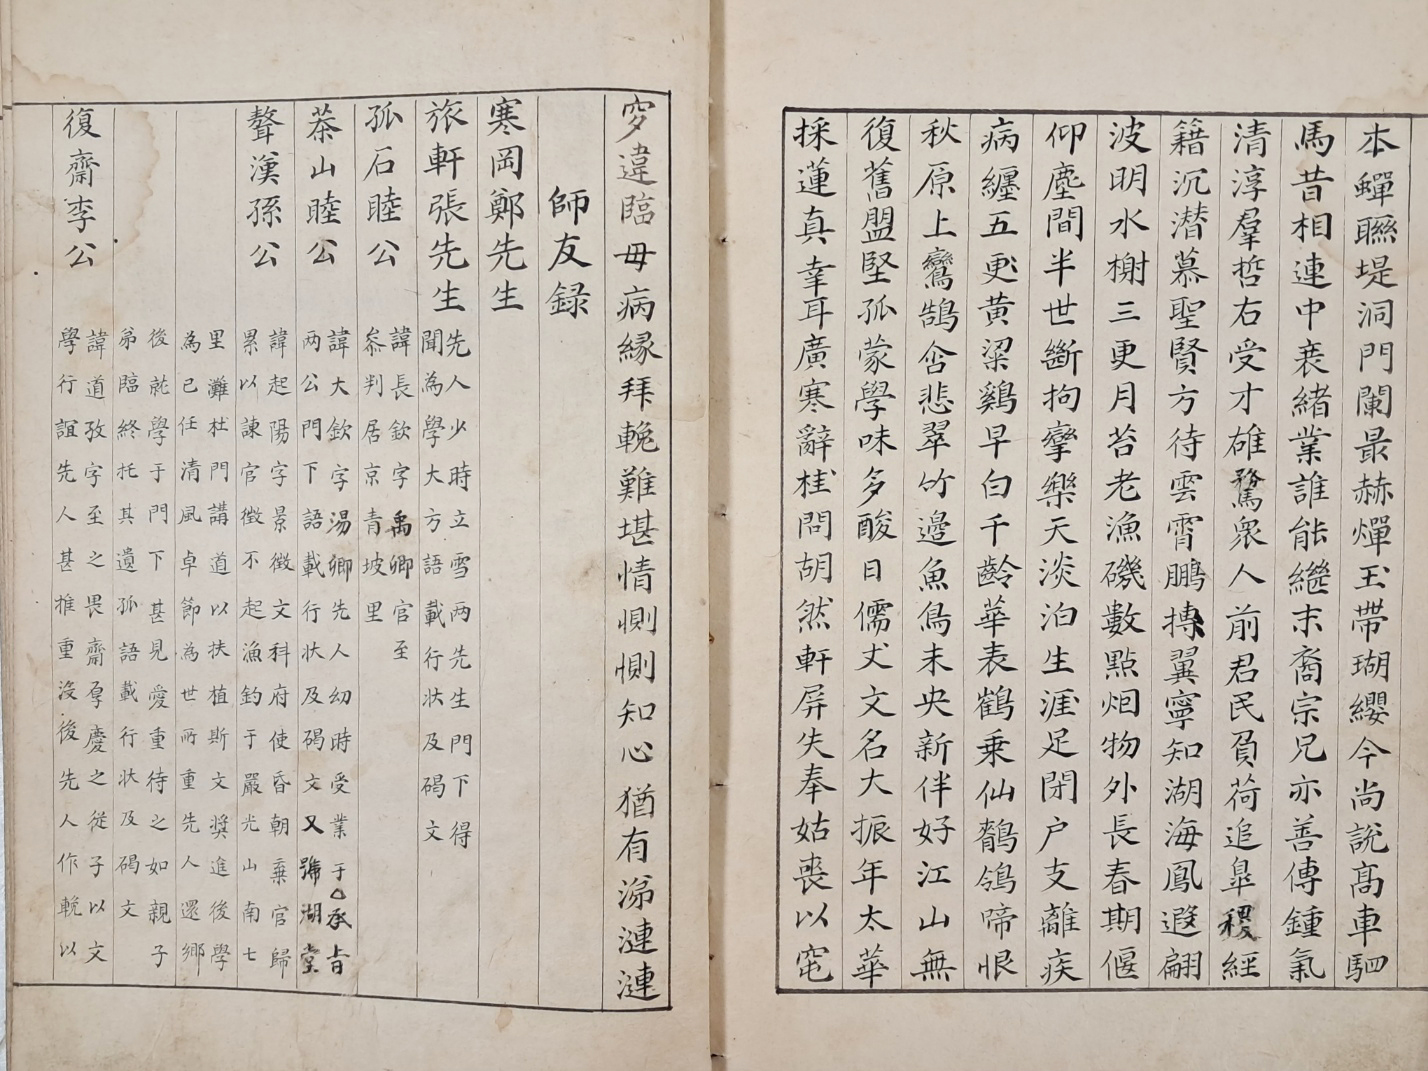 本蟬聯堤洞門闌最赫燀玉帶瑚纓今尚說髙車駟
馬昔相連中衰緒業誰能繼末裔宗兄亦善傳鍾氣
清淳羣哲右受才雄騖衆人前君民負荷追皐稷經
籍沉潛慕聖賢方待雲霄鵬摶翼寧知湖海鳳遐翩
波明水榭三更月苔老漁磯數點烟物外長春期偃
仰塵間半世斷拘攣樂天淡泊生涯足閉户支離疾
病纏五更黄粱鷄早白千齡華表鶴乗仙鶺鴒啼恨
秋原上鸞鵠含悲翠竹邊魚鳥未央新伴好江山無
復舊盟堅孤蒙學味多酸目儒丈文名大振年太華
採蓮真幸耳廣寒辭桂問胡然軒屏失奉姑喪以窀
穸違臨毋病縁拜輓難堪情惻惻知心猶有涕漣漣
師友録
寒岡鄭先生
旅軒張先生 先人少時立雪两先生門下得
聞為學大方語載行状及碣文
孤石睦公 諱長欽字禹卿官至
叅判居京青坡里
茶山睦公 諱大欽字湯卿先人幼時受業于承旨
两公門下語載行状及碣文又號湖堂
聱漢孫公 諱起陽字景徴文科府使昏朝棄官歸
累以諫官徴不起漁釣于嚴光山南七
里灘杜門講道以扶植斯文奬進後學
為已任清風卓節為世所重先人還鄉
後就學于門下甚見愛重待之如親子
弟臨終托其遺孤語載行状及碣文
復齋李公 諱道孜字至之畏齋厚慶之從子以文
學行誼先人甚推重沒後先人作輓以